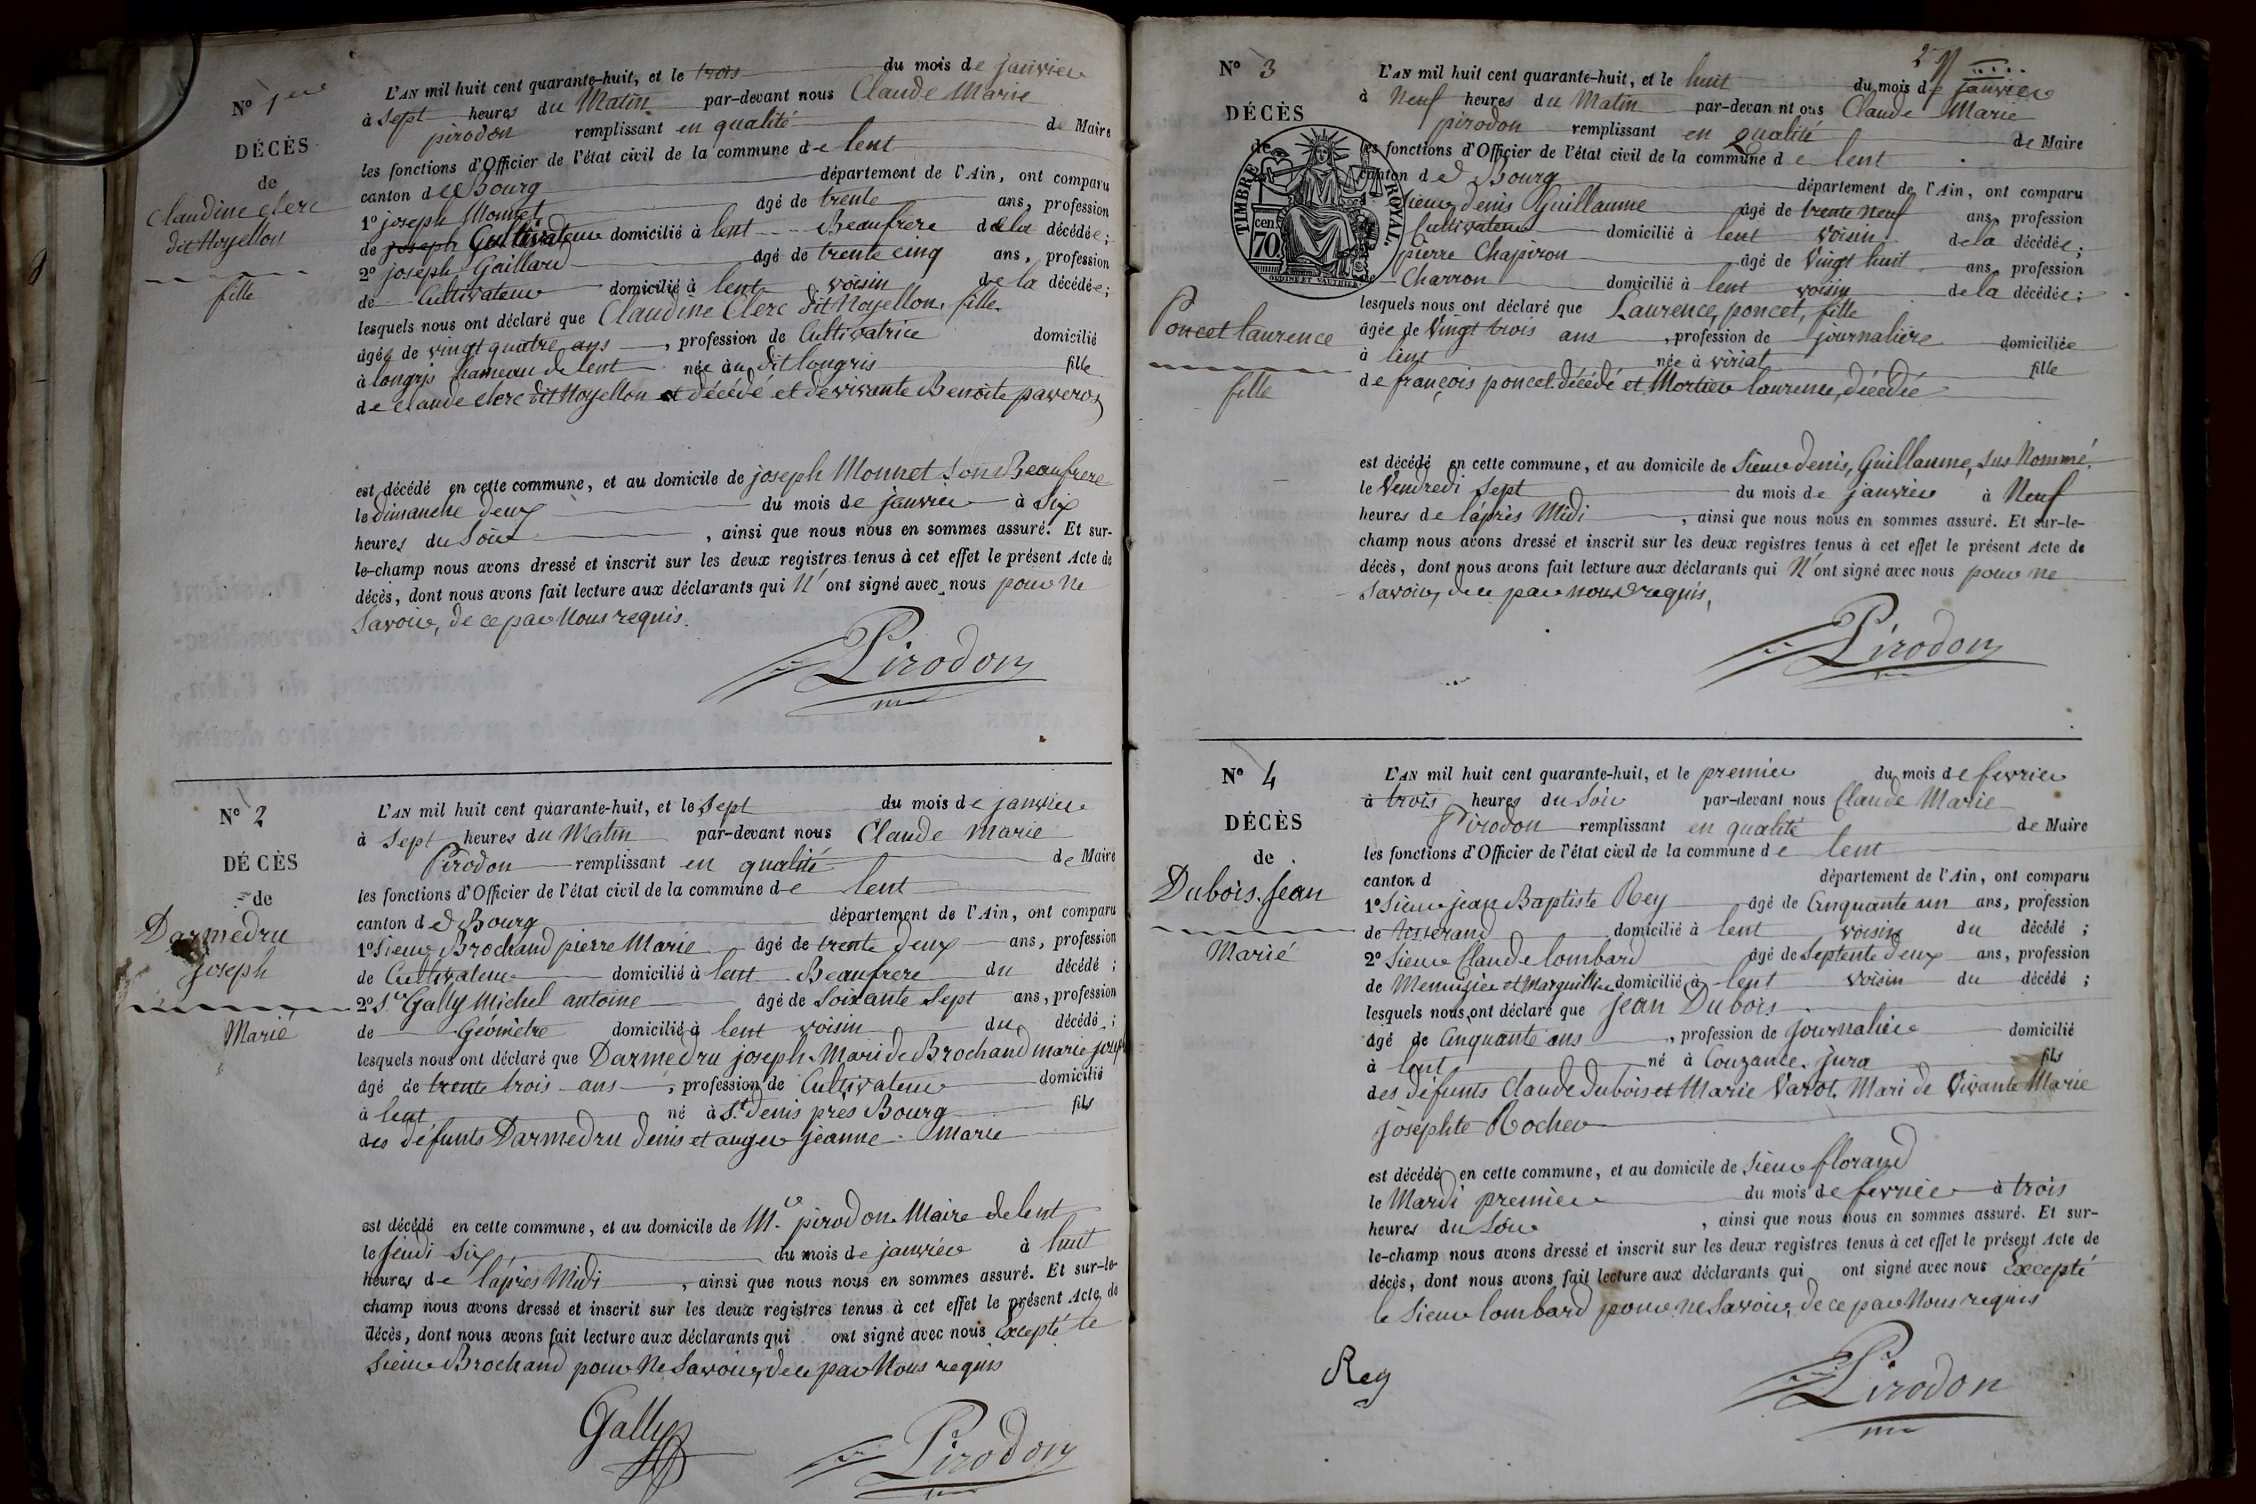 N° 1er
DÉCÈS
de
Claudine Clerc
dit Noyellon
fille
L'AN mil huit cent quarante-huit, et le trois du mois de janvier
à sept heures du Matin par-devant nous Claude Marie
pirodon remplissant en qualité de Maire
les fonctions d'Officier de l'état civil de la commune de lent
canton de Bourg département de l'Ain, ont comparu
1° joseph Monnet âgé de trente ans, profession
de joseph Cultivateur domicilié à lent Beaufrere de la décédée;
2° joseph Gaillard âgé de trente cinq ans, profession
de Cultivateur domicilié à lent voisin de la décédée;
lesquels nous ont déclaré que Claudine Clerc dit Noyellon, fille
âgée de vingt quatre ans, profession de Cultivatrice domicilié
à longris hameau de lent née au dit longris fille
de Claude Clerc dit Noyellon et décédé et de vivante Benoite
est décédé en cette commune, et au domicile de joseph Monnet son Beaufrere
le dimanche deux du mois de janvier à six
heures du Soir, ainsi que nous nous en sommes assuré. Et sur-
le-champ nous avons dressé et inscrit sur les deux registres tenus à cet effet le présent Acte de
décès, dont nous avons fait lecture aux déclarants qui N' ont signé avec nous pour ne
Savoir, de ce par Nous requis.
Pirodon
N° 2
DÉCÈS
de
Darmedru
joseph
Marié
L'AN mil huit cent quarante-huit, et le Sept du mois de janvier
à sept heures du Matin par-devant nous Claude Marie
Pirodon remplissant en qualité de Maire
les fonctions d'Officier de l'état civil de la commune de lent
canton de Bourg département de l'Ain, ont comparu
1° Sieur Brochand pierre Marie âgé de trente deux ans, profession
de Cultivateur domicilié à lent Beaufrere du décédé;
2° Sr Gally Michel antoine âgé de Soixante Sept ans, profession
de Géomètre domicilié à lent voisin du décédé;
lesquels nous ont déclaré que Darmedru joseph Mari de Brochand marie
âgé de trente trois ans, profession de Cultivateur domicilié
à lent né à St denis près Bourg fils
des défunts Darmedru Denis et auger jeanne marie
est décédé en cette commune, et au domicile de Mr pirodon Maire de lent
le jeudi six du mois de janvier à huit
heures de l'après Midi, ainsi que nous nous en sommes assuré. Et sur-le-
champ nous avons dressé et inscrit sur les deux registres tenus à cet effet le présent Acte de
décès, dont nous avons fait lecture aux déclarants qui ont signé avec nous Excepté le
Sieur Brochand pour Ne Savoir, de ce par Nous requis
Gally
Pirodon
N° 3
DÉCÈS
de
TIMBRE ROYAL.
70 cen
Poncet laurence
fille
L'AN mil huit cent quarante-huit, et le huit du mois de janvier
à Neuf heures du Matin par-devan nt ous Claude Marie
pirodon remplissant en qualité de Maire
les fonctions d'Officier de l'état civil de la commune de lent
canton de Bourg département de l'Ain, ont comparu
Sieur denis Guillaume âgé de trente neuf ans, profession
Cultivateur domicilié à lent voisin de la décédée;
pierre Chapiron âgé de Vingt huit ans, profession
Charron domicilié à lent voisin de la décédée;
lesquels nous ont déclaré que Laurence, poncet, fille
âgée de Vingt trois ans, profession de journalière domiciliée
à lent née à viriat fille
de françois poncet décédé et Mortier laurence, décédée
est décédé en cette commune, et au domicile de Sieur denis, Guillaume, sus Nommé.
le Vendredi sept du mois de janvier à Neuf
heures de l'après Midi, ainsi que nous nous en sommes assuré. Et sur-le-
champ nous avons dressé et inscrit sur les deux registres tenus à cet effet le présent Acte de
décès, dont nous avons fait lecture aux déclarants qui N' ont signé avec nous pour ne
Savoir, de ce par nous requis,
Pirodon
N° 4
DÉCÈS
de
Dubois Jean
Marié
L'AN mil huit cent quarante-huit, et le premier du mois de fevrier
à trois heures du Soir par-devant nous Claude Marie
Pirodon remplissant en qualité de Maire
les fonctions d'Officier de l'état civil de la commune de lent
canton d département de l'Ain, ont comparu
1° Sieur jean Baptiste Rey âgé de Cinquante un ans, profession
de tisserand domicilié à lent voisin du décédé;
2° Sieur Claude lombard âgé de Septente deux ans, profession
de Menuisier et Marguillier domicilié à lent voisin du décédé;
lesquels nous ont déclaré que jean Dubois
âgé de Cinquante ans, profession de journalier domicilié
à lent né à Couzance jura fils
des défunts Claude Dubois et Marie Varot Mari de Vivante Marie
josephte Rocher
est décédé en cette commune, et au domicile de Sieur florand
le Mardi premier du mois de fevrier à trois
heures du Soir, ainsi que nous nous en sommes assuré. Et sur-
le-champ nous avons dressé et inscrit sur les deux registres tenus à cet effet le présent Acte de
décès, dont nous avons fait lecture aux déclarants qui ont signé avec nous Excepté
le Sieur lombard pour ne Savoir, de ce par Nous requis
Rey
Pirodon